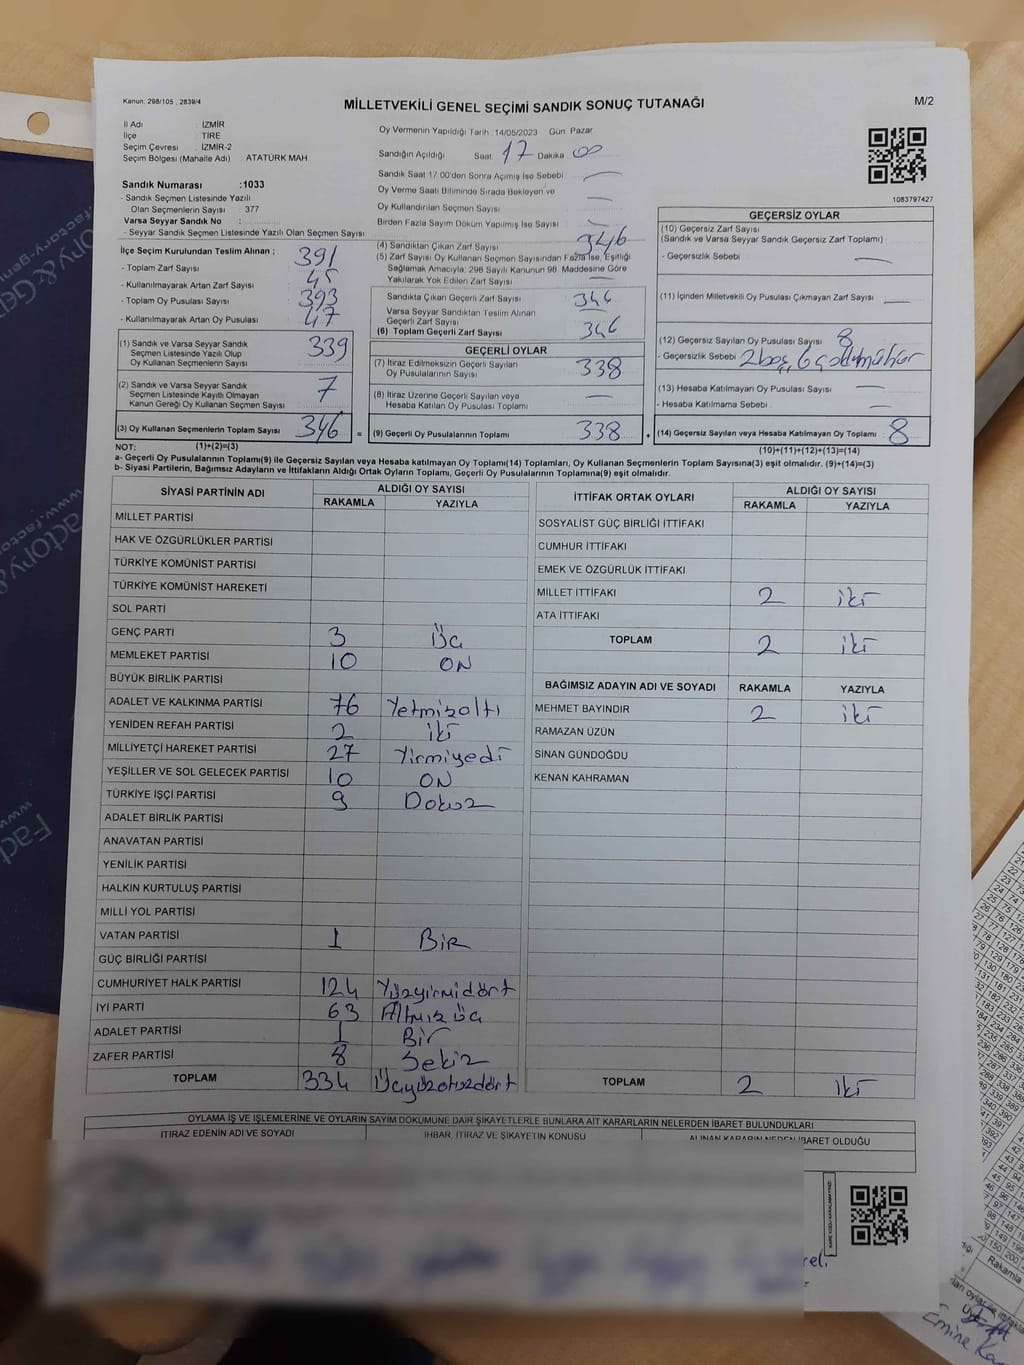 Kanun: 298/105 , 2839/4
MİLLETVEKİLİ GENEL SEÇİMİ SANDIK SONUÇ TUTANAĞI
M/2
İl Adı : İZMİR
İlçe : TİRE
Seçim Çevresi : İZMİR-2
Seçim Bölgesi (Mahalle Adı) : ATATÜRK MAH
Sandık Numarası :1033
- Sandık Seçmen Listesinde Yazılı
Olan Seçmenlerin Sayısı : 377
Varsa Seyyar Sandık No :
- Seyyar Sandık Seçmen Listesinde Yazılı Olan Seçmenlerin Sayısı :
Oy Vermenin Yapıldığı Tarih :14/05/2023 Gün Pazar
Sandığın Açıldığı Saat 17 Dakika 00
Sandık Saat 17.00'den Sonra Açılmış İse Sebebi —
Oy Verme Saati Bitiminde Sırada Bekleyen ve
Oy Kullandırılan Seçmen Sayısı —
Birden Fazla Sayım Döküm Yapılmış İse Sayısı —
1083797427
İlçe Seçim Kurulundan Teslim Alınan ;
- Toplam Zarf Sayısı 391
- Kullanılmayarak Artan Zarf Sayısı 45
- Toplam Oy Pusulası Sayısı 393
- Kullanılmayarak Artan Oy Pusulası 47
(1) Sandık ve Varsa Seyyar Sandık
Seçmen Listesinde Yazılı Olup
Oy Kullanan Seçmenlerin Sayısı 339
(2) Sandık ve Varsa Seyyar Sandık
Seçmen Listesinde Kayıtlı Olmayan
Kanun Gereği Oy Kullanan Seçmen Sayısı 7
(3) Oy Kullanan Seçmenlerin Toplam Sayısı 346 =
(4) Sandıktan Çıkan Zarf Sayısı 346
(5) Zarf Sayısı Oy Kullanan Seçmen Sayısından Fazla İse, Eşitliği
Sağlamak Amacıyla; 298 Sayılı Kanunun 98. Maddesine Göre
Yakılarak Yok Edilen Zarf Sayısı —
Sandıkta Çıkan Geçerli Zarf Sayısı 346
Varsa Seyyar Sandıktan Teslim Alınan
Geçerli Zarf Sayısı
(6) Toplam Geçerli Zarf Sayısı 346
GEÇERLİ OYLAR
(7) İtiraz Edilmeksizin Geçerli Sayılan
Oy Pusulalarının Sayısı 338
(8) İtiraz Üzerine Geçerli Sayılan veya
Hesaba Katılan Oy Pusulası Toplamı —
(9) Geçerli Oy Pusulalarının Toplamı 338 +
GEÇERSİZ OYLAR
(10) Geçersiz Zarf Sayısı
(Sandık ve Varsa Seyyar Sandık Geçersiz Zarf Toplamı)
- Geçersizlik Sebebi —
(11) İçinden Milletvekili Oy Pusulası Çıkmayan Zarf Sayısı —
(12) Geçersiz Sayılan Oy Pusulası Sayısı 8
- Geçersizlik Sebebi 2 boş,
(13) Hesaba Katılmayan Oy Pusulası Sayısı —
- Hesaba Katılmama Sebebi —
(14) Geçersiz Sayılan veya Hesaba Katılmayan Oy Toplamı 8
NOT: (1)+(2)=(3)
(10)+(11)+(12)+(13)=(14)
a- Geçerli Oy Pusulalarının Toplamı(9) ile Geçersiz Sayılan veya Hesaba katılmayan Oy Toplamı(14) Toplamları, Oy Kullanan Seçmenlerin Toplam Sayısına(3) eşit olmalıdır. (9)+(14)=(3)
b- Siyasi Partilerin, Bağımsız Adayların ve İttifakların Aldığı Ortak Oyların Toplamı, Geçerli Oy Pusulalarının Toplamına(9) eşit olmalıdır.
SİYASİ PARTİNİN ADI ALDIĞI OY SAYISI
RAKAMLA YAZIYLA
MİLLET PARTİSİ
HAK VE ÖZGÜRLÜKLER PARTİSİ
TÜRKİYE KOMÜNİST PARTİSİ
TÜRKİYE KOMÜNİST HAREKETİ
SOL PARTİ
GENÇ PARTİ 3 Üç
MEMLEKET PARTİSİ 10 ON
BÜYÜK BİRLİK PARTİSİ
ADALET VE KALKINMA PARTİSİ 76 Yetmişaltı
YENİDEN REFAH PARTİSİ 2 iki
MİLLİYETÇİ HAREKET PARTİSİ 27 Yirmiyedi
YEŞİLLER VE SOL GELECEK PARTİSİ 10 ON
TÜRKİYE İŞÇİ PARTİSİ 9 Dokuz
ADALET BİRLİK PARTİSİ
ANAVATAN PARTİSİ
YENİLİK PARTİSİ
HALKIN KURTULUŞ PARTİSİ
MİLLİ YOL PARTİSİ
VATAN PARTİSİ 1 Bir
GÜÇ BİRLİĞİ PARTİSİ
CUMHURİYET HALK PARTİSİ 124 Yüzyirmidört
İYİ PARTİ 63 Altmış üç
ADALET PARTİSİ 1 Bir
ZAFER PARTİSİ 8 Sekiz
TOPLAM 334 Üçyüzotuzdört
İTTİFAK ORTAK OYLARI ALDIĞI OY SAYISI
RAKAMLA YAZIYLA
SOSYALİST GÜÇ BİRLİĞİ İTTİFAKI
CUMHUR İTTİFAKI
EMEK VE ÖZGÜRLÜK İTTİFAKI
MİLLET İTTİFAKI 2 iki
ATA İTTİFAKI
TOPLAM 2 iki
BAĞIMSIZ ADAYIN ADI VE SOYADI RAKAMLA YAZIYLA
MEHMET BAYINDIR 2 iki
RAMAZAN ÜZÜN
SİNAN GÜNDOĞDU
KENAN KAHRAMAN
TOPLAM 2 iki
OYLAMA İŞ VE İŞLEMLERİNE VE OYLARIN SAYIM DÖKÜMÜNE DAİR ŞİKAYETLERLE BUNLARA AİT KARARLARIN NELERDEN İBARET BULUNDUKLARI
İTİRAZ EDENİN ADI VE SOYADI İHBAR, İTİRAZ VE ŞİKAYETİN KONUSU ALINAN KARARIN NEDEN İBARET OLDUĞU
Rakamla
Emine